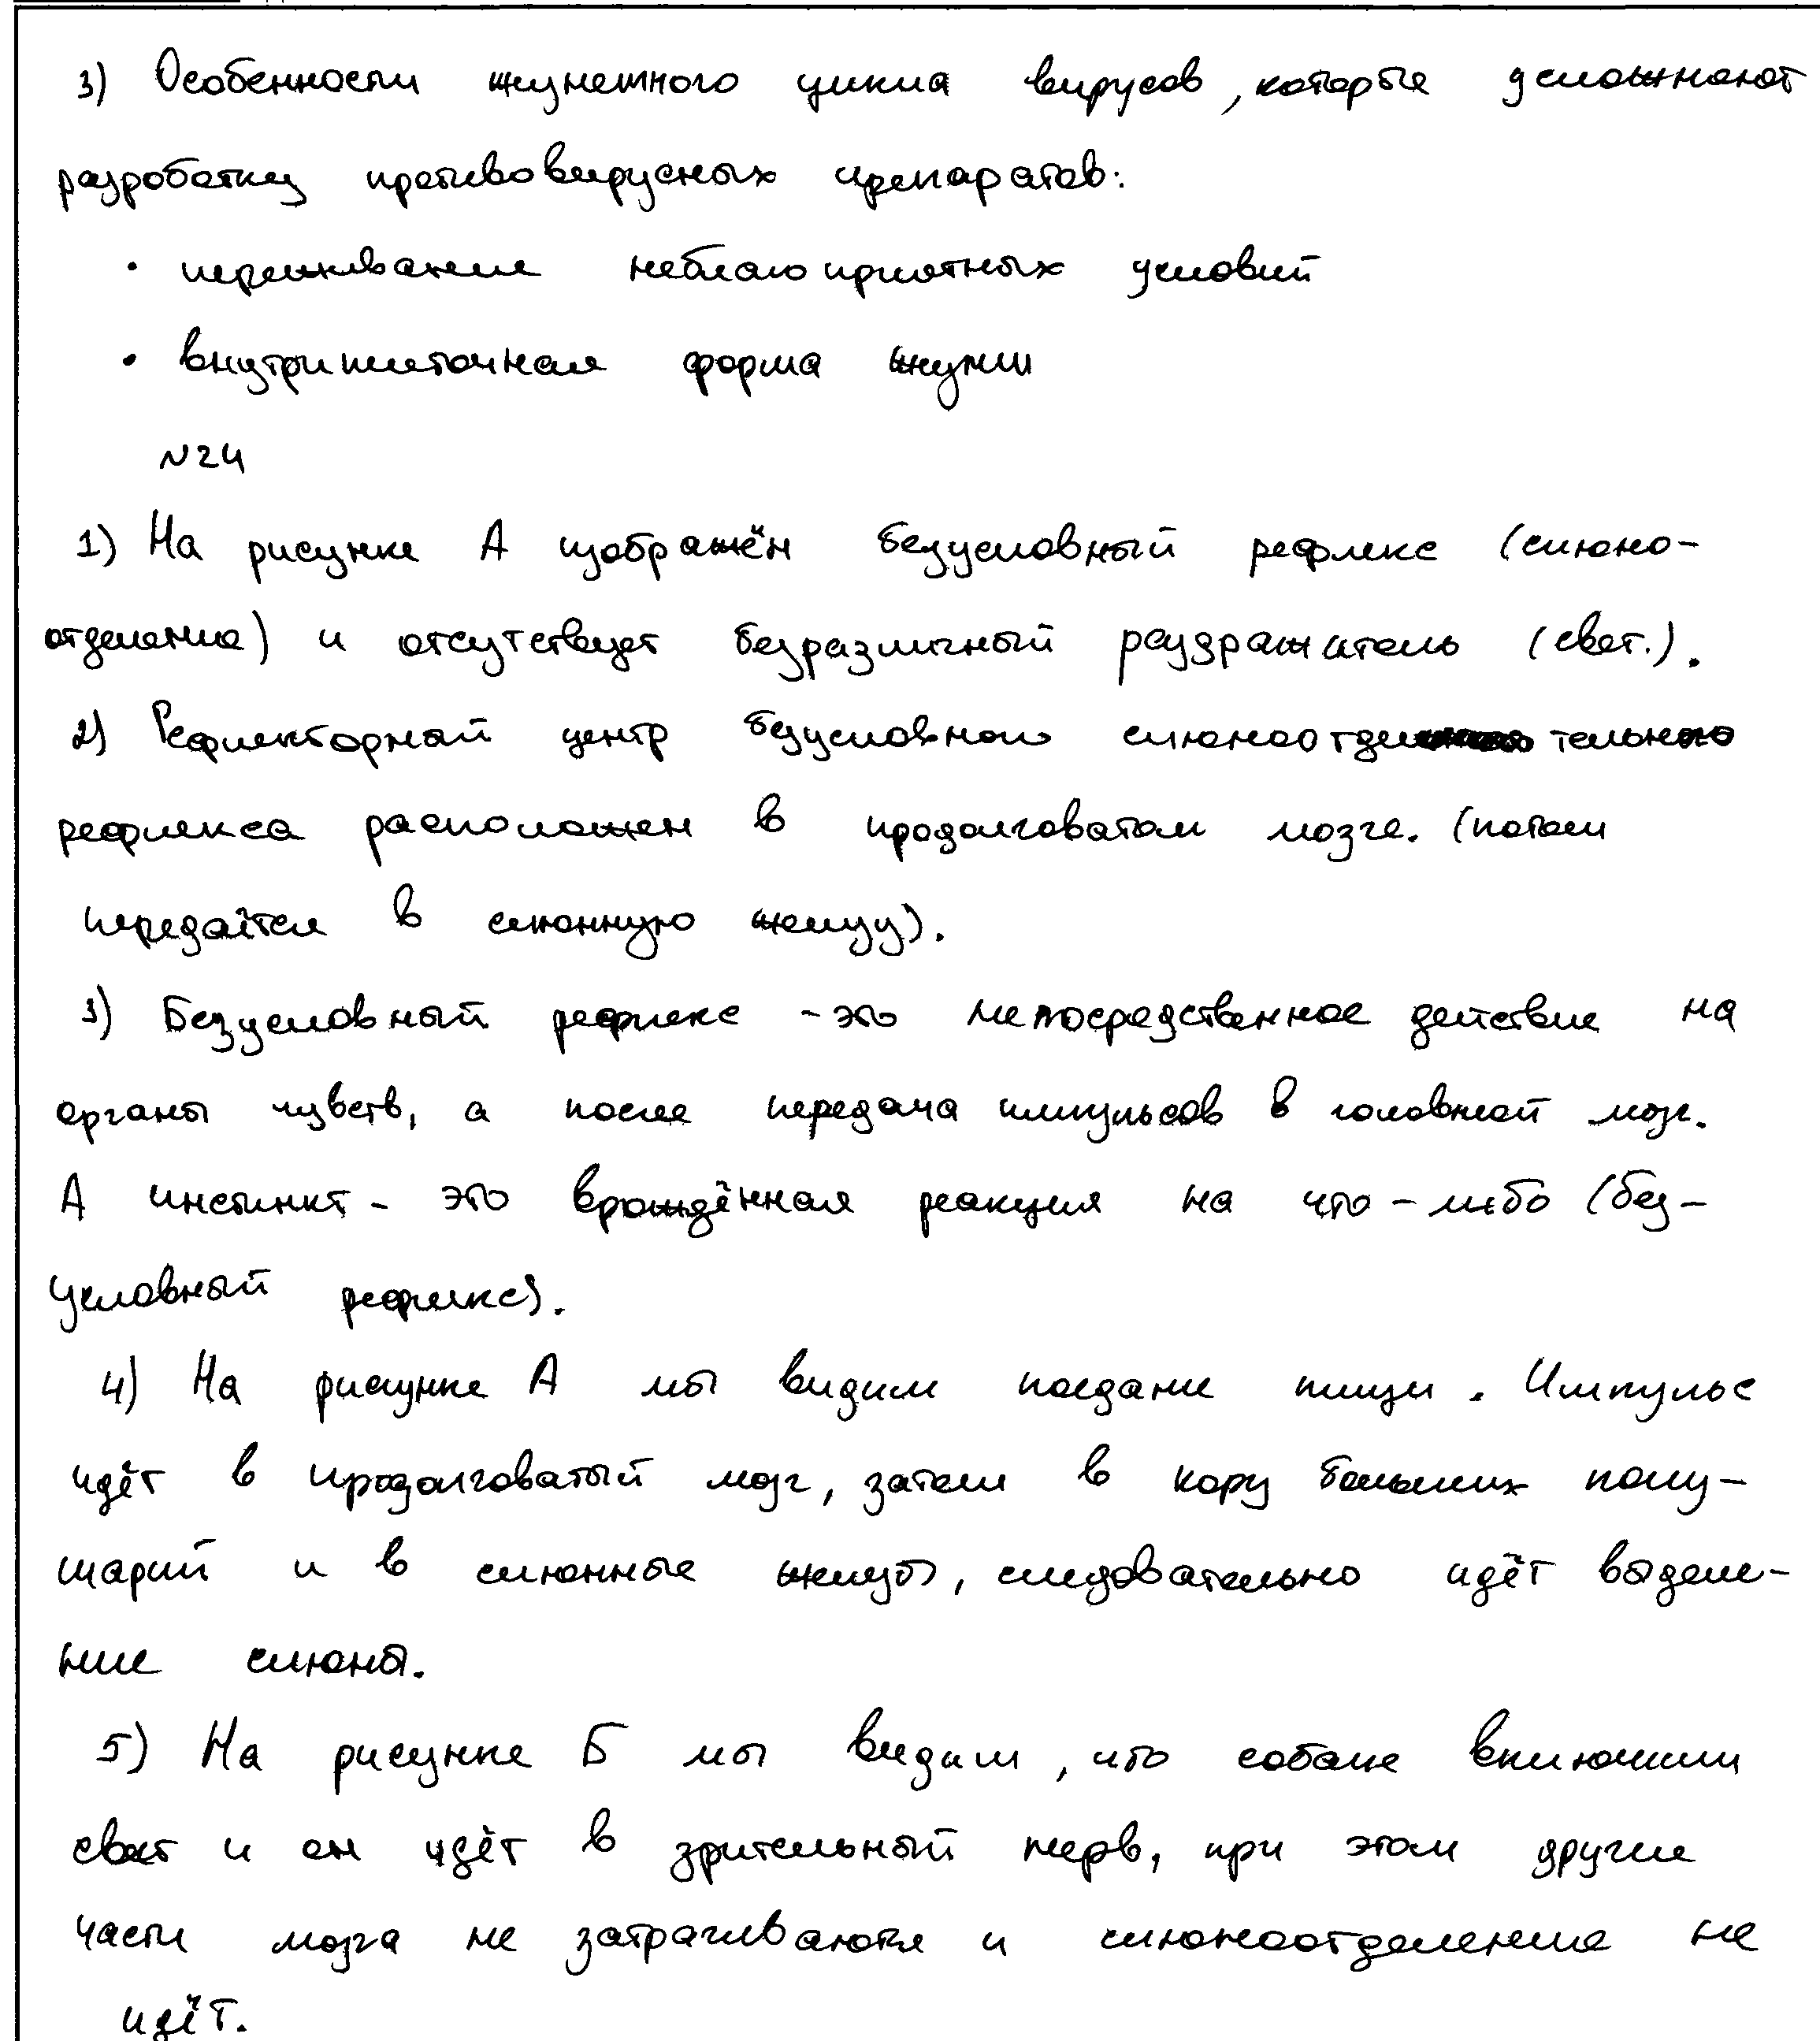 3) Особенности жизненного цикла вирусов, которые усложняют
разработку противовирусных препаратов:
• переживание неблагоприятных условий
• внутриклеточная форма жизни
№24
1) На рисунке А изображён безусловный рефлекс (слюно-
отделения) и отсутствует безразличный раздражитель (свет.).
2) Рефлекторный центр безусловного слюноотделительного
рефлекса расположен в продолговатом мозге. (потом
передаётся в слюнную железу).
3) Безусловный рефлекс - это непосредственное действие на
органы чувств, а после передача импульсов в головной мозг.
А инстинкт - это врождённая реакция на что-либо (без-
условный рефлекс).
4) На рисунке А мы видим поедание пищи. Импульс
идёт в продолговатый мозг, затем в кору больших полу-
шарий и в слюнные железы, следовательно идёт выделе-
ние слюны.
5) На рисунке Б мы видим, что собаке включили
свет и он идёт в зрительный нерв, при этом другие
части мозга не затрагиваются и слюноотделение не
идёт.